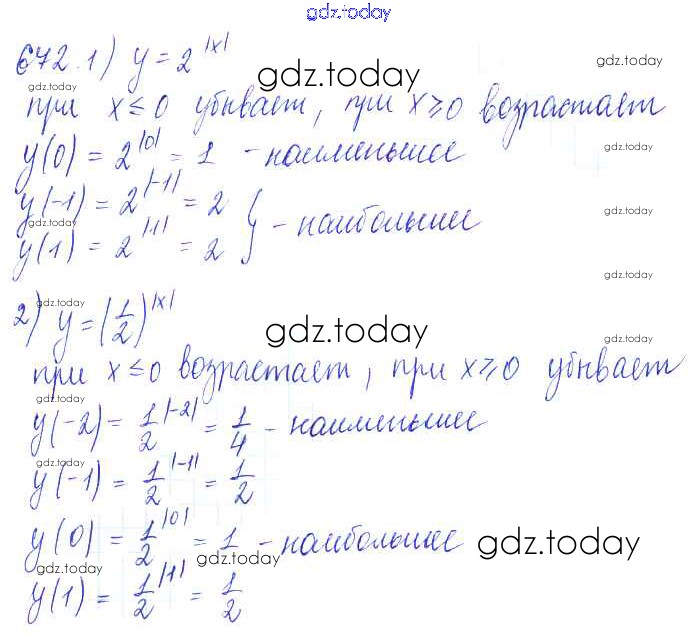 gdz.today
672. 1) y = 2^|x| gdz.today gdz.today
при x ≤ 0 убывает, при x ≥ 0 возрастает
gdz.today
y(0) = 2^|0| = 1 - наименьшее gdz.today
y(-1) = 2^|-1| = 2
gdz.today } - наибольшее gdz.today
y(1) = 2^|1| = 2
gdz.today
gdz.today
2) y = (1/2)^|x| gdz.today gdz.today
при x ≤ 0 возрастает, при x ≥ 0 убывает
gdz.today
y(-2) = 1/2^|-2| = 1/4 - наименьшее
gdz.today
y(-1) = 1/2^|-1| = 1/2
y(0) = 1/2^|0| = 1 - наибольшее gdz.today
gdz.today gdz.today
y(1) = 1/2^|1| = 1/2